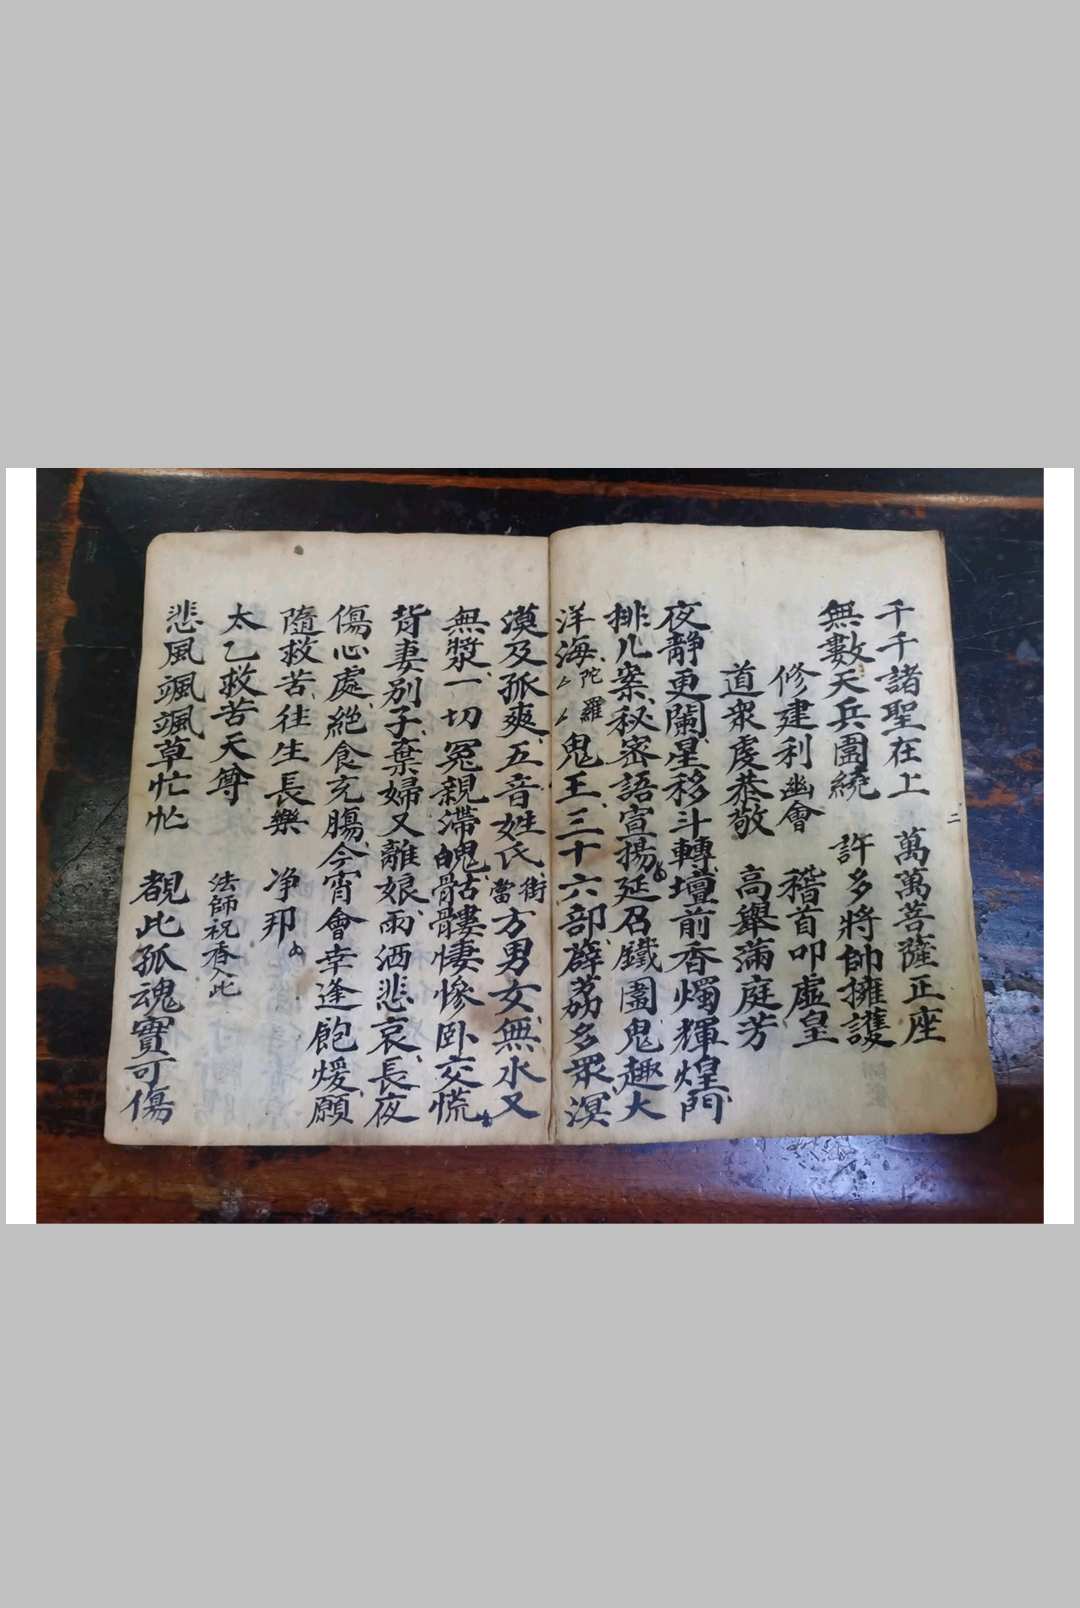 千千諸聖在上 萬萬菩薩正座
無數天兵圍繞 許多將帥擁護
修建利幽會 稽首叩虛皇
道衆虔恭敬 高舉滿庭芳
夜靜更闌星移斗轉壇前香燭輝煌
排几案秘密語宣揚延召鐵圍鬼趣大
洋海陀羅鬼王三十六部薜荔多眾溟
漠及孤爽五音姓氏當街方男女無水又
無漿一切冤親滯魄骷髏悽慘卧交慌
背妻別子棄婦又離娘雨洒悲哀長夜
傷心處絕食充腸今宵會幸逢飽煖願
隨救苦往生長樂 净邦
太乙救苦天尊 法師祝香入此
悲風颯颯草忙忙 覩此孤魂實可傷
二